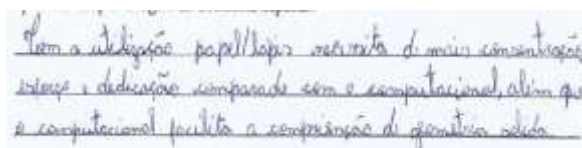 Com a utilização papel/lapis necessita de mais consentração,
esforço e dedicação comparado com o computacional, além que
o computacional facilita a compriensão de geometria solida.